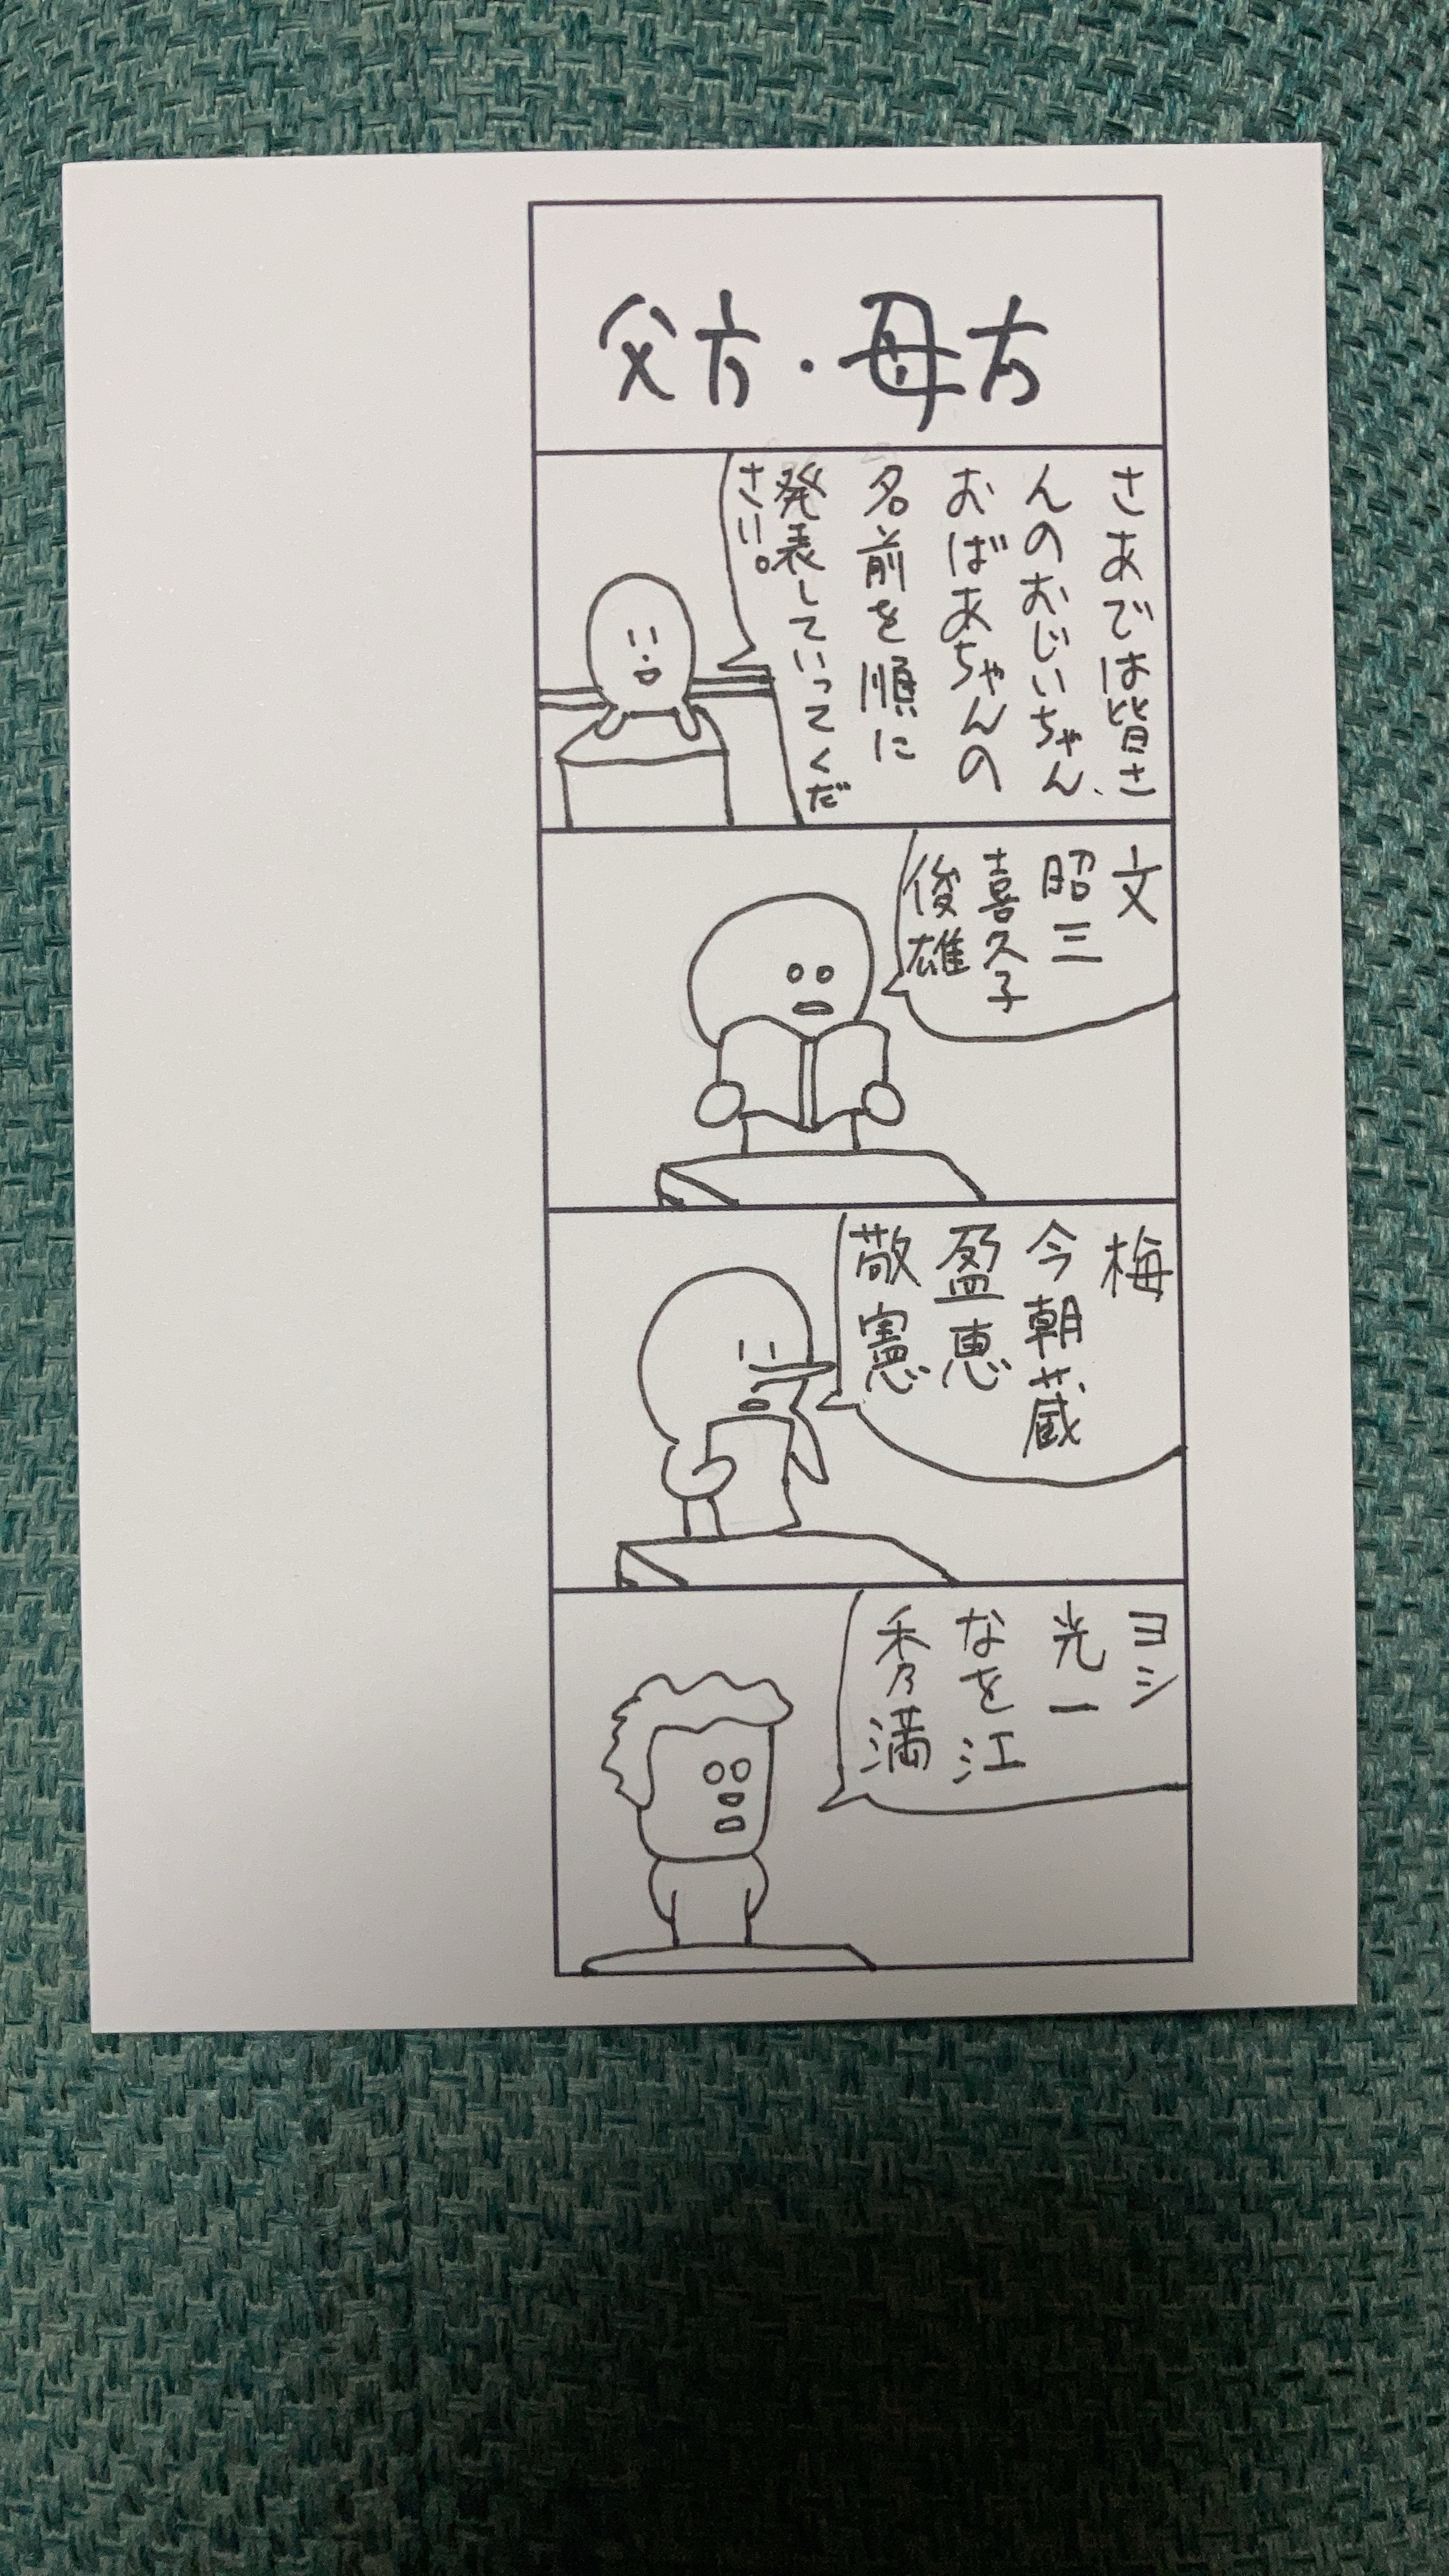 父方・母方
さあでは皆さ
んのおじいちゃん、
おばあちゃんの
名前を順に
発表していってくだ
さい。
文
昭三
喜久子
俊雄
梅
今朝蔵
盈恵
敬憲
ヨシ
光一
なを江
秀満